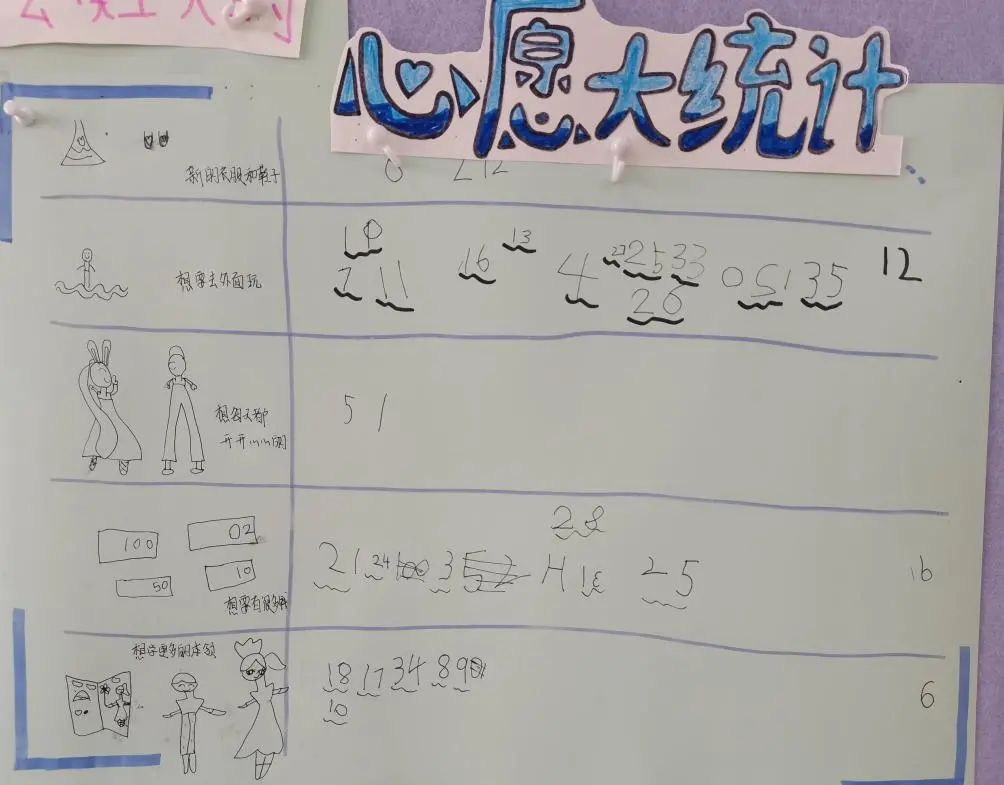 心愿大统计
新的衣服和鞋子
想要去外面玩
10 13
7 11 16 4 23 25 33 0 51 35 12
26
想每天都
开开心心的
5 1
100 02
50 10
想要有很多钱
28
21 24 3 H 18 25 16
想学更多的本领
18 17 34 8 9 6
10